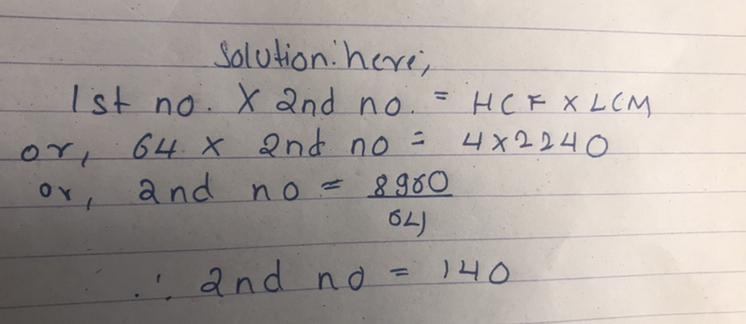 Solution: here,
1st no. X 2nd no. = HCF X LCM
or, 64 X 2nd no = 4X2240
or, 2nd no = 8960
64
∴ 2nd no = 140